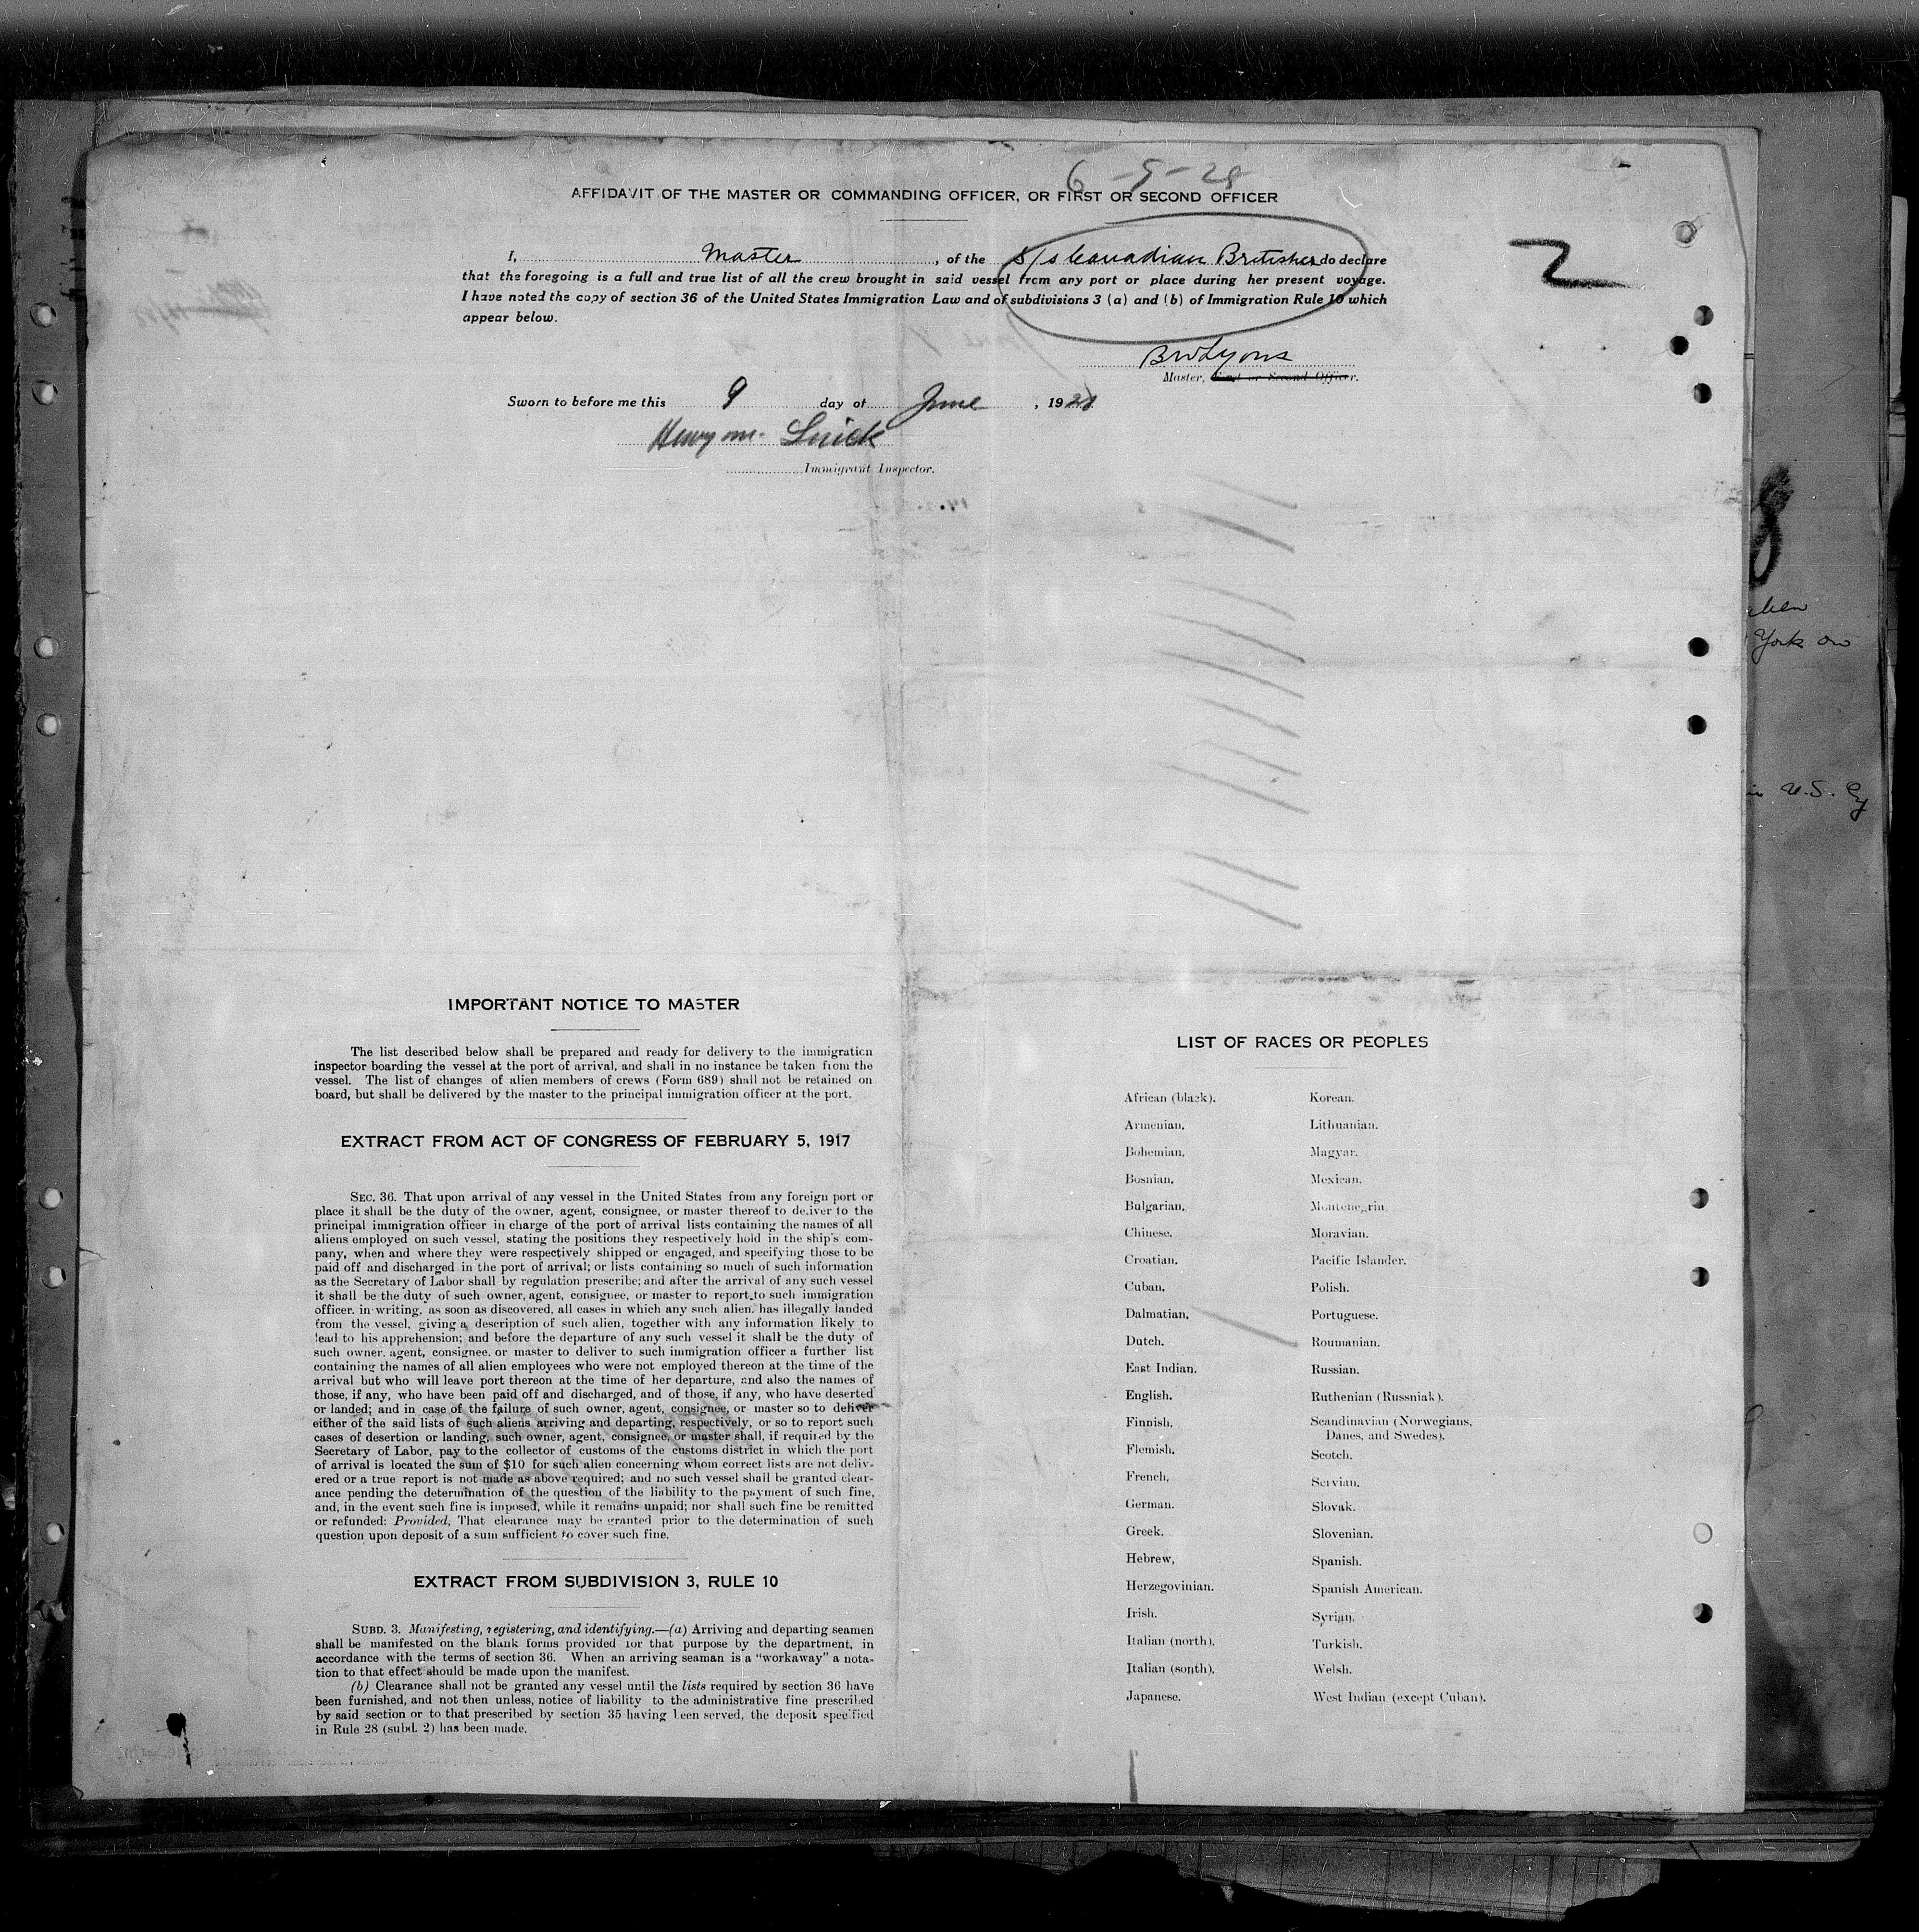 6-9-28
AFFIDAVIT OF THE MASTER OR COMMANDING OFFICER, OR FIRST OR SECOND OFFICER
I, Master, of the S/s Canadian Britisher do declare
that the foregoing is a full and true list of all the crew brought in said vessel from any port or place during her present voyage.
I have noted the copy of section 36 of the United States Immigration Law and of subdivisions 3 (a) and (b) of Immigration Rule 10 which
appear below.
2
BW Lyons
Master, First or Second Officer.
Sworn to before me this 9 day of June, 1928
Henry M.
Immigrant Inspector.
8
York on
in U.S. by
IMPORTANT NOTICE TO MASTER
The list described below shall be prepared and ready for delivery to the immigration
inspector boarding the vessel at the port of arrival, and shall in no instance be taken from the
vessel. The list of changes of alien members of crews (Form 689) shall not be retained on
board, but shall be delivered by the master to the principal immigration officer at the port.
EXTRACT FROM ACT OF CONGRESS OF FEBRUARY 5, 1917
SEC. 36. That upon arrival of any vessel in the United States from any foreign port or
place it shall be the duty of the owner, agent, consignee, or master thereof to deliver to the
principal immigration officer in charge of the port of arrival lists containing the names of all
aliens employed on such vessel, stating the positions they respectively hold in the ship's com-
pany, when and where they were respectively shipped or engaged, and specifying those to be
paid off and discharged in the port of arrival; or lists containing so much of such information
as the Secretary of Labor shall by regulation prescribe; and after the arrival of any such vessel
it shall be the duty of such owner, agent, consignee, or master to report to such immigration
officer, in writing, as soon as discovered, all cases in which any such alien has illegally landed
from the vessel, giving a description of such alien, together with any information likely to
lead to his apprehension; and before the departure of any such vessel it shall be the duty of
such owner, agent, consignee, or master to deliver to such immigration officer a further list
containing the names of all alien employees who were not employed thereon at the time of the
arrival but who will leave port thereon at the time of her departure, and also the names of
those, if any, who have been paid off and discharged, and of those, if any, who have deserted
or landed; and in case of the failure of such owner, agent, consignee, or master so to deliver
either of the said lists of such aliens arriving and departing, respectively, or so to report such
cases of desertion or landing, such owner, agent, consignee, or master shall, if required by the
Secretary of Labor, pay to the collector of customs of the customs district in which the port
of arrival is located the sum of $10 for such alien concerning whom correct lists are not deliv-
ered or a true report is not made as above required; and no such vessel shall be granted clear-
ance pending the determination of the question of the liability to the payment of such fine,
and, in the event such fine is imposed, while it remains unpaid; nor shall such fine be remitted
or refunded: Provided, That clearance may be granted prior to the determination of such
question upon deposit of a sum sufficient to cover such fine.
EXTRACT FROM SUBDIVISION 3, RULE 10
SUBD. 3. Manifesting, registering, and identifying.—(a) Arriving and departing seamen
shall be manifested on the blank forms provided for that purpose by the department, in
accordance with the terms of section 36. When an arriving seaman is a "workaway" a nota-
tion to that effect should be made upon the manifest.
(b) Clearance shall not be granted any vessel until the lists required by section 36 have
been furnished, and not then unless, notice of liability to the administrative fine prescribed
by said section or to that prescribed by section 35 having been served, the deposit specified
in Rule 28 (subd. 2) has been made.
LIST OF RACES OR PEOPLES
African (black).
Armenian.
Bohemian.
Bosnian.
Bulgarian.
Chinese.
Croatian.
Cuban.
Dalmatian.
Dutch.
East Indian.
English.
Finnish.
Flemish.
French.
German.
Greek.
Hebrew.
Herzegovinian.
Irish.
Italian (north).
Italian (south).
Japanese.
Korean.
Lithuanian.
Magyar.
Mexican.
Montenegrin.
Moravian.
Pacific Islander.
Polish.
Portuguese.
Roumanian.
Russian.
Ruthenian (Russniak).
Scandinavian (Norwegians,
Danes, and Swedes).
Scotch.
Servian.
Slovak.
Slovenian.
Spanish.
Spanish American.
Syrian.
Turkish.
Welsh.
West Indian (except Cuban).